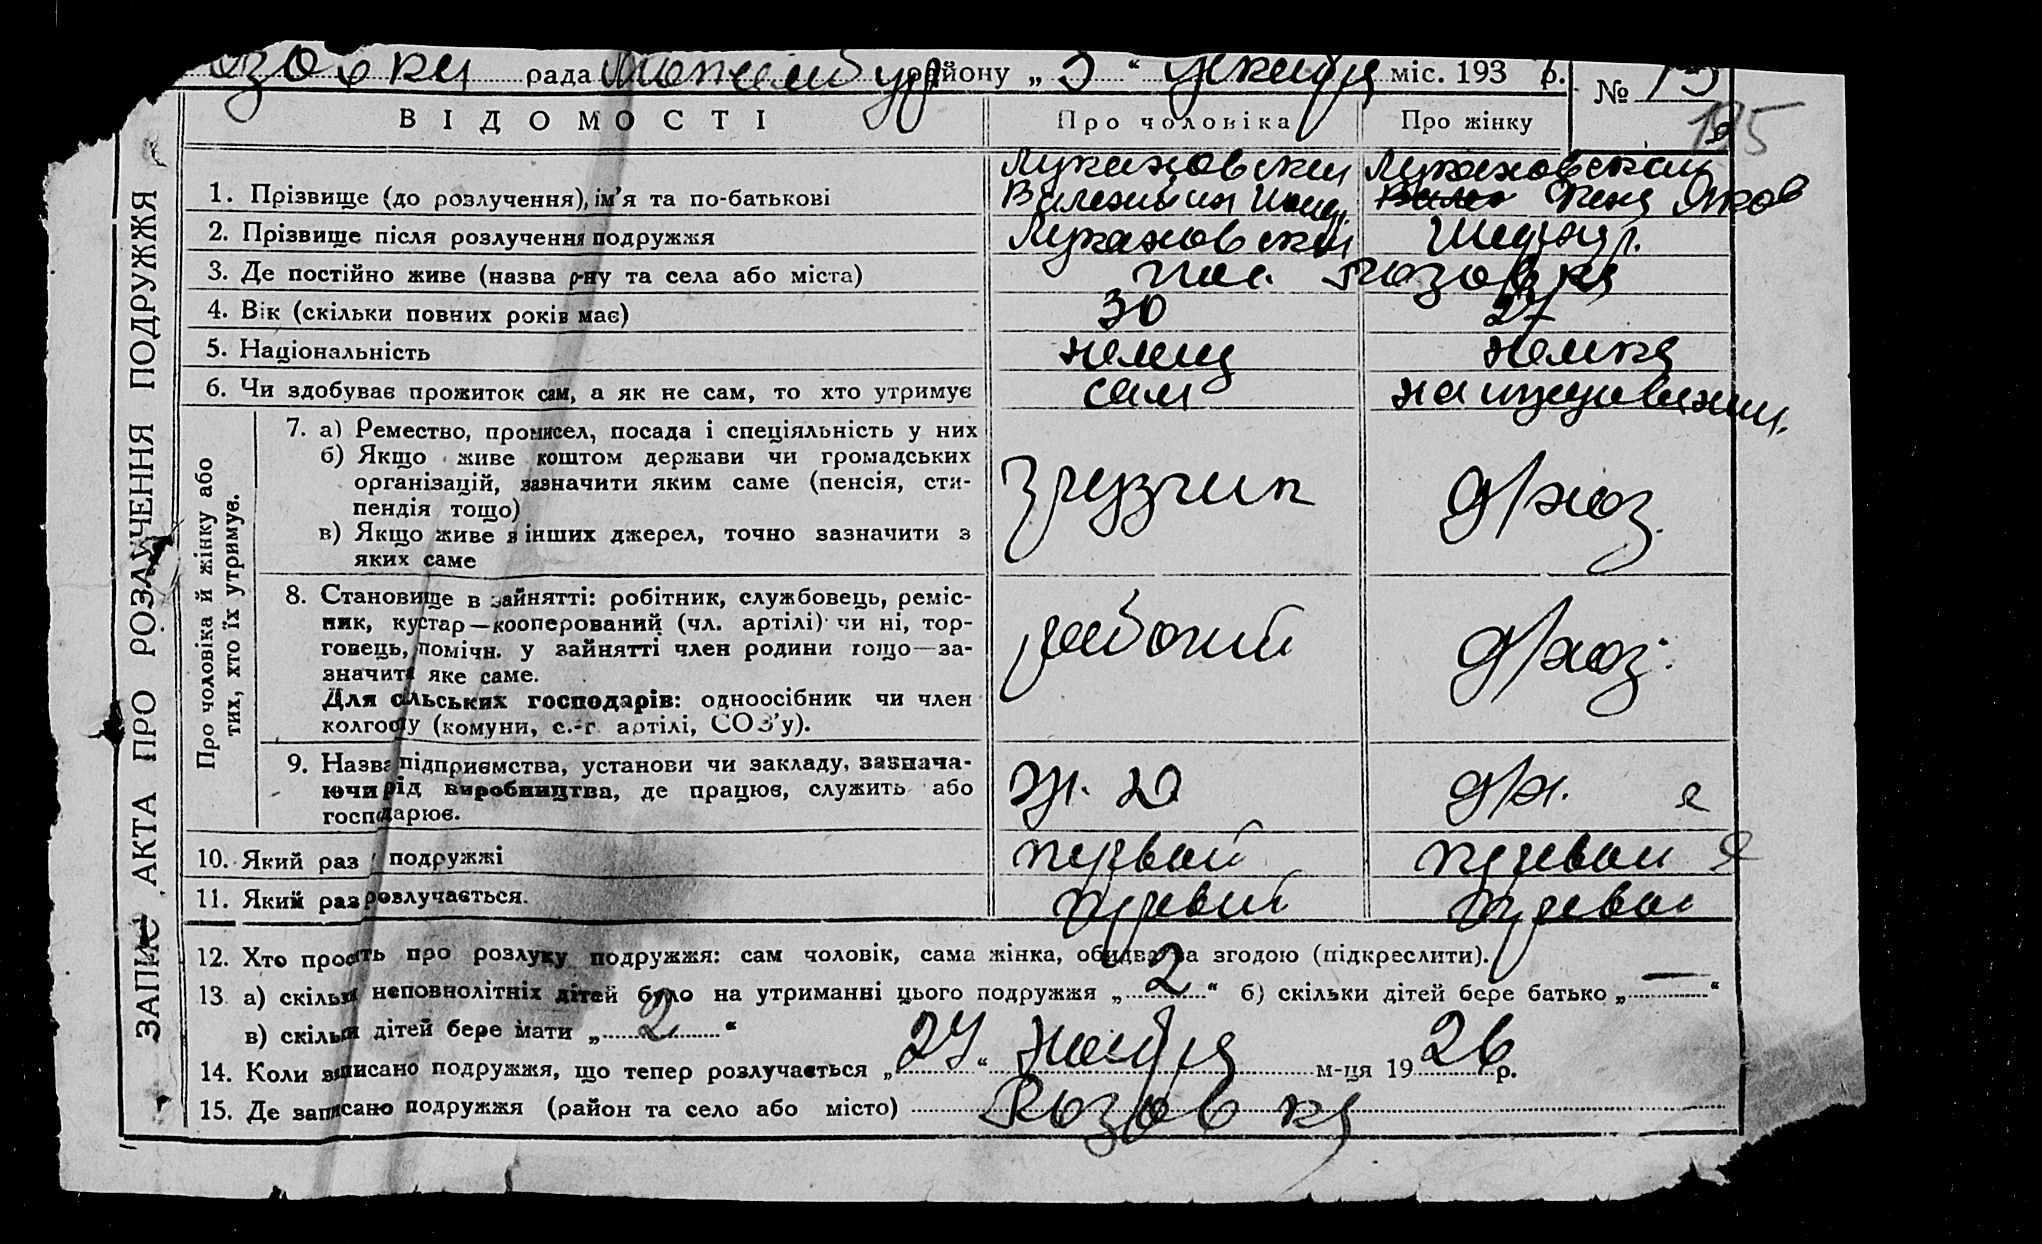 озовки рада району „ 5 “ декабря міс. 193 р. № 15
195
ВІДОМОСТІ Про чоловіка Про жінку
ЗАПИС АКТА ПРО РОЗЛУЧЕННЯ ПОДРУЖЖЯ
Лукановский Лукановская
1. Прізвище (до розлучення), ім'я та по-батькові Яков
2. Прізвище після розлучення подружжя Лукановский
3. Де постійно живе (назва р-ну та села або міста) пос. Розовка
4. Вік (скільки повних років має) 30 27
5. Національність немец немка
6. Чи здобуває прожиток сам, а як не сам, то хто утримує сам на иждивении
Про чоловіка й жінку або тих, хто їх утримує.
7. а) Ремество, промисел, посада і спеціяльність у них
б) Якщо живе коштом держави чи громадських
організацій, зазначити яким саме (пенсія, сти-
пендія тощо) грузчик д/хоз.
в) Якщо живе з інших джерел, точно зазначити з
яких саме
8. Становище в зайнятті: робітник, службовець, реміс-
ник, кустар—кооперований (чл. артілі) чи ні, тор-
говець, помічн. у зайнятті член родини тощо—за- рабочий д/хоз.
значити яке саме.
Для сільських господарів: одноосібник чи член
колгоспу (комуни, с.-г. артілі, СОЗ'у).
9. Назва підприємства, установи чи закладу, зазнача-
ючи рід виробництва, де працює, служить або ж. д д/х.
господарює.
10. Який раз подружжі первый первый
11. Який раз розлучається. первый первый
12. Хто просить про розлуку подружжя: сам чоловік, сама жінка, обидва за згодою (підкреслити).
13. а) скільки неповнолітніх дітей було на утриманні цього подружжя „ 2 “ б) скільки дітей бере батько „ — “
в) скільки дітей бере мати „ 2 “
14. Коли записано подружжя, що тепер розлучається „ 27 “ ноября м-ця 19 26 р.
15. Де записано подружжя (район та село або місто) Розовка